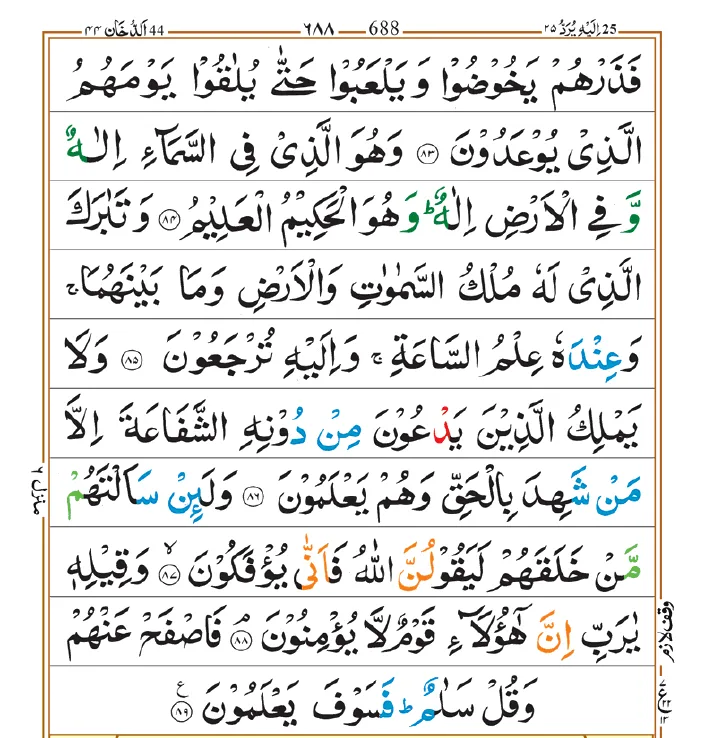 اِلَیْهِ یُرَدُّ ۲۵ 25 688 ٦٨٨ اَلدُّخَان ۴۴ 44
فَذَرْهُمْ یَخُوْضُوْا وَ یَلْعَبُوْا حَتّٰی یُلٰقُوْا یَوْمَهُمُ
الَّذِیْ یُوْعَدُوْنَ ۝۸۳ وَهُوَ الَّذِیْ فِی السَّمَآءِ اِلٰهٌ
وَّ فِی الْاَرْضِ اِلٰهٌ ؕ وَهُوَ الْحَكِیْمُ الْعَلِیْمُ ۝۸۴ وَ تَبٰرَكَ
الَّذِیْ لَهٗ مُلْكُ السَّمٰوٰتِ وَالْاَرْضِ وَمَا بَیْنَهُمَا ۚ
وَعِنْدَهٗ عِلْمُ السَّاعَةِ ۚ وَاِلَیْهِ تُرْجَعُوْنَ ۝۸۵ وَلَا
یَمْلِكُ الَّذِیْنَ یَدْعُوْنَ مِنْ دُوْنِهِ الشَّفَاعَةَ اِلَّا
مَنْ شَهِدَ بِالْحَقِّ وَهُمْ یَعْلَمُوْنَ ۝۸۶ وَلَىِٕنْ سَاَلْتَهُمْ
مَّنْ خَلَقَهُمْ لَیَقُوْلُنَّ اللّٰهُ فَاَنّٰی یُؤْفَكُوْنَ ۙ۝۸۷ وَقِیْلِهٖ
یٰرَبِّ اِنَّ هٰۤؤُلَآءِ قَوْمٌ لَّا یُؤْمِنُوْنَ ۘ۝۸۸ فَاصْفَحْ عَنْهُمْ
وَقُلْ سَلٰمٌ ؕ فَسَوْفَ یَعْلَمُوْنَ ۝۸۹ ع
منزل ۶
وقف لازم
ع